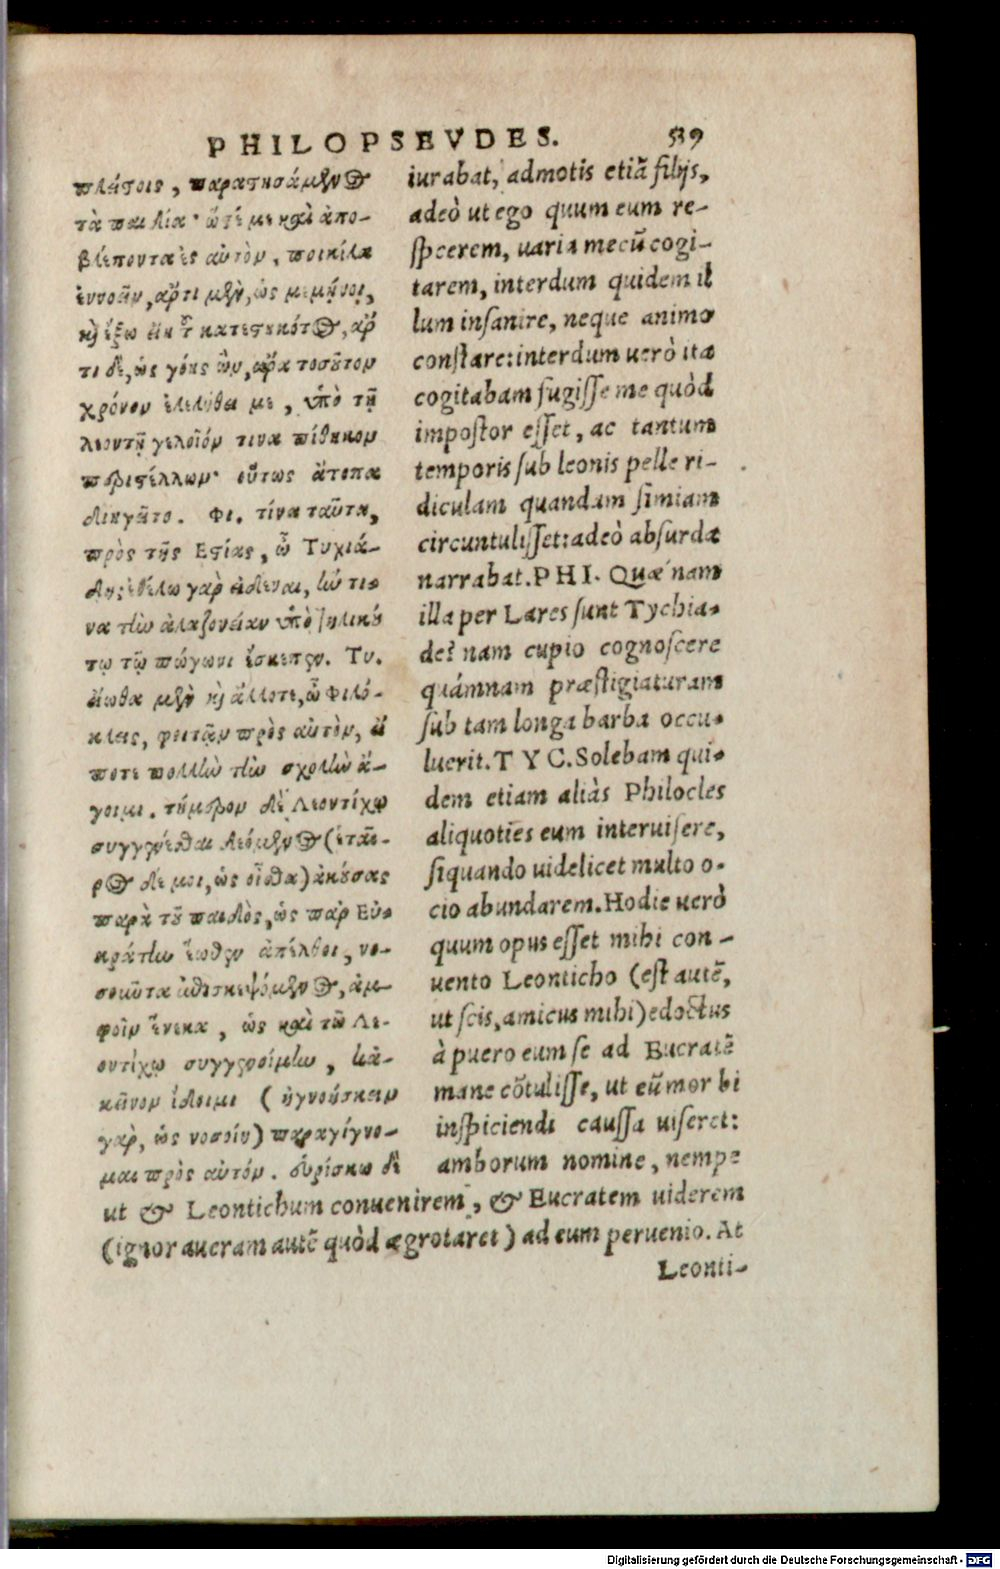 PHILOPSEVDES. 539
πλάτοις, παραστησάμενος
τὰ παιδία· ὥστέ με καὶ ἀπο-
βλέποντα ἐς αὐτὸν, ποικίλα
ἐννοεῖν, ἄρτι μὲν, ὡς μεμήνοι,
καὶ ἔξω εἴη τ κατεστηκότος, ἄρ
τι δὲ, ὡς γόης ὢν, ἄρα τοσοῦτον
χρόνον ἐλελήθει με, ὑπὸ τῇ
λεοντῇ γελοῖόν τινα πίθηκον
περιστέλλων· οὕτως ἄτοπα
διηγεῖτο. Φι. τίνα ταῦτα,
πρὸς τῆς Εστίας, ὦ Τυχιά-
δη; ἐθέλω γὰρ εἰδέναι, ἥν τι-
να τὴν ἀλαζονείαν ὑπὸ τηλικού
τῳ τῷ πώγωνι ἔσκεπεν. Τυ.
εἴωθα μὲν καὶ ἄλλοτε, ὦ Φιλό-
κλεις, φοιτᾷν πρὸς αὐτὸν, εἴ
ποτε πολλὴν τὴν σχολὴν ἄ-
γοιμι. τήμερον δὲ Λεοντίχῳ
συγγενέσθαι δεόμενος (ἑταῖ-
ρος δέ μοι, ὡς οἶσθα) ἀκούσας
παρὰ τοῦ παιδὸς, ὡς παρ Εὐ-
κράτην ἕωθεν ἀπέλθοι, νο-
σοῦντα ἐπισκεψόμενος, ἀμ-
φοῖν ἕνεκα, ὡς καὶ τῷ Λε-
οντίχῳ συγγενοίμην, κἀ-
κεῖνον ἴδοιμι (ἠγνοήκειν
γὰρ, ὡς νοσοίη) παραγίγνο-
μαι πρὸς αὐτόν. εὑρίσκω δὲ
iurabat, admotis etiã filijs,
adeò ut ego quum eum re-
spicerem, uaria mecũ cogi-
tarem, interdum quidem il
lum insanire, neque animo
constare: interdum uerò ita
cogitabam fugisse me quòd
impostor esset, ac tantum
temporis sub leonis pelle ri-
diculam quandam simiam
circuntulisset: adeò absurda
narrabat. PHI. Quæ nam
illa per Lares sunt Tychia-
de? nam cupio cognoscere
quámnam præstigiaturam
sub tam longa barba occu-
luerit. TYC. Solebam qui-
dem etiam aliàs Philocles
aliquoties eum interuisere,
siquando uidelicet multo o-
cio abundarem. Hodie uerò
quum opus esset mihi con-
uento Leonticho (est autẽ,
ut scis, amicus mihi) edoctus
à puero eum se ad Eucratẽ
mane cõtulisse, ut eũ morbi
inspiciendi caussa uiseret:
amborum nomine, nempe
ut & Leontichum conuenirem, & Eucratem uiderem
(ignoraueram autẽ quòd ægrotaret) ad eum peruenio. At
Leonti-
Digitalisierung gefördert durch die Deutsche Forschungsgemeinschaft - DFG